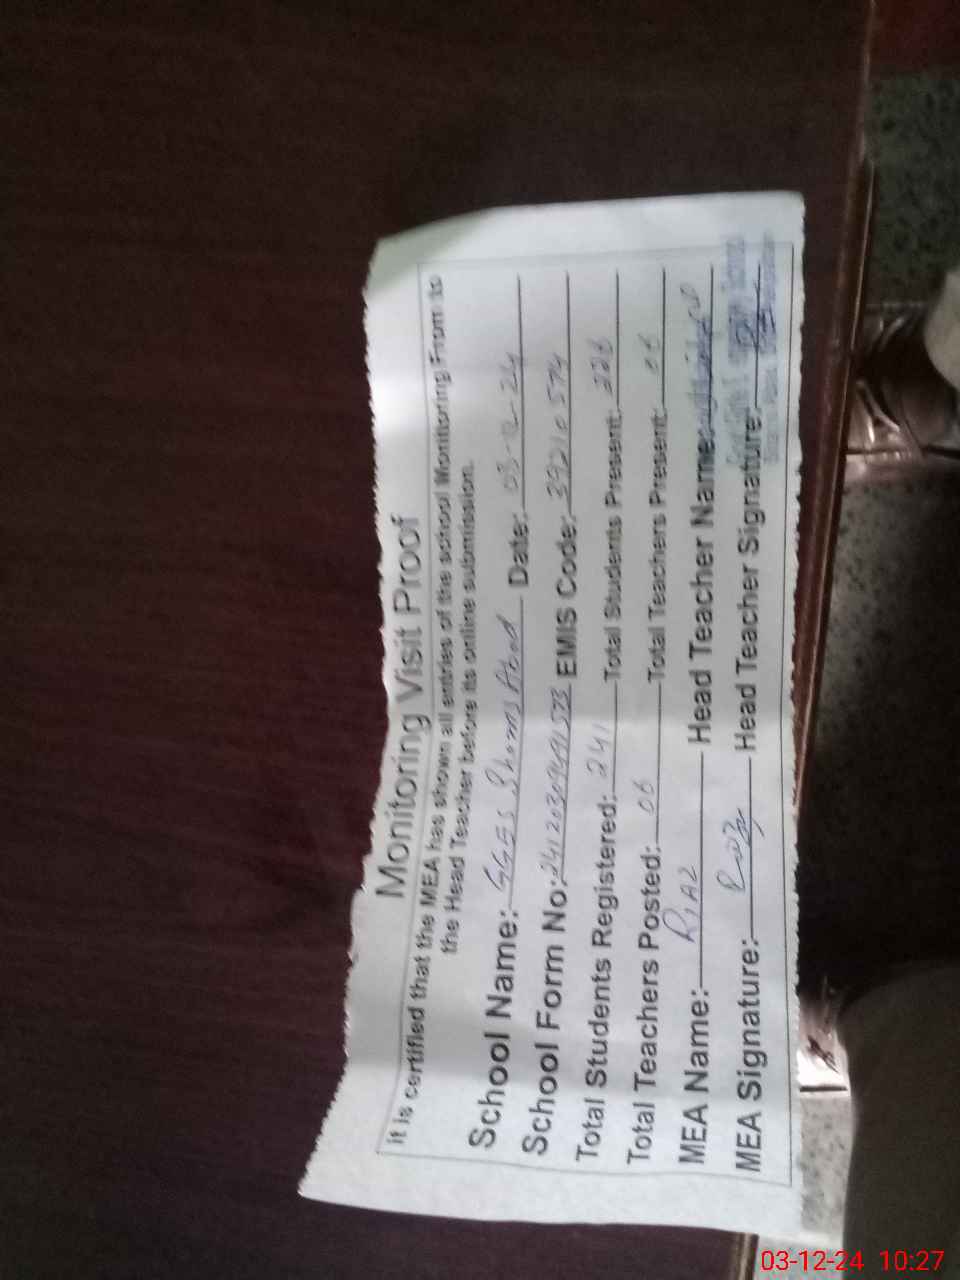 Monitoring Visit Proof
it is certified that the MEA has shown all entries of the school Monitoring From to
the Head Teacher before its online submission.
School Name: GGES Shams Abad Date: 03-12-24
School Form No: EMIS Code: 39210574
Total Students Registered: 241 Total Students Present: 226
Total Teachers Posted: 06 Total Teachers Present: 06
MEA Name: RIAZ Head Teacher Name:
MEA Signature: Head Teacher Signature:
03-12-24 10:27